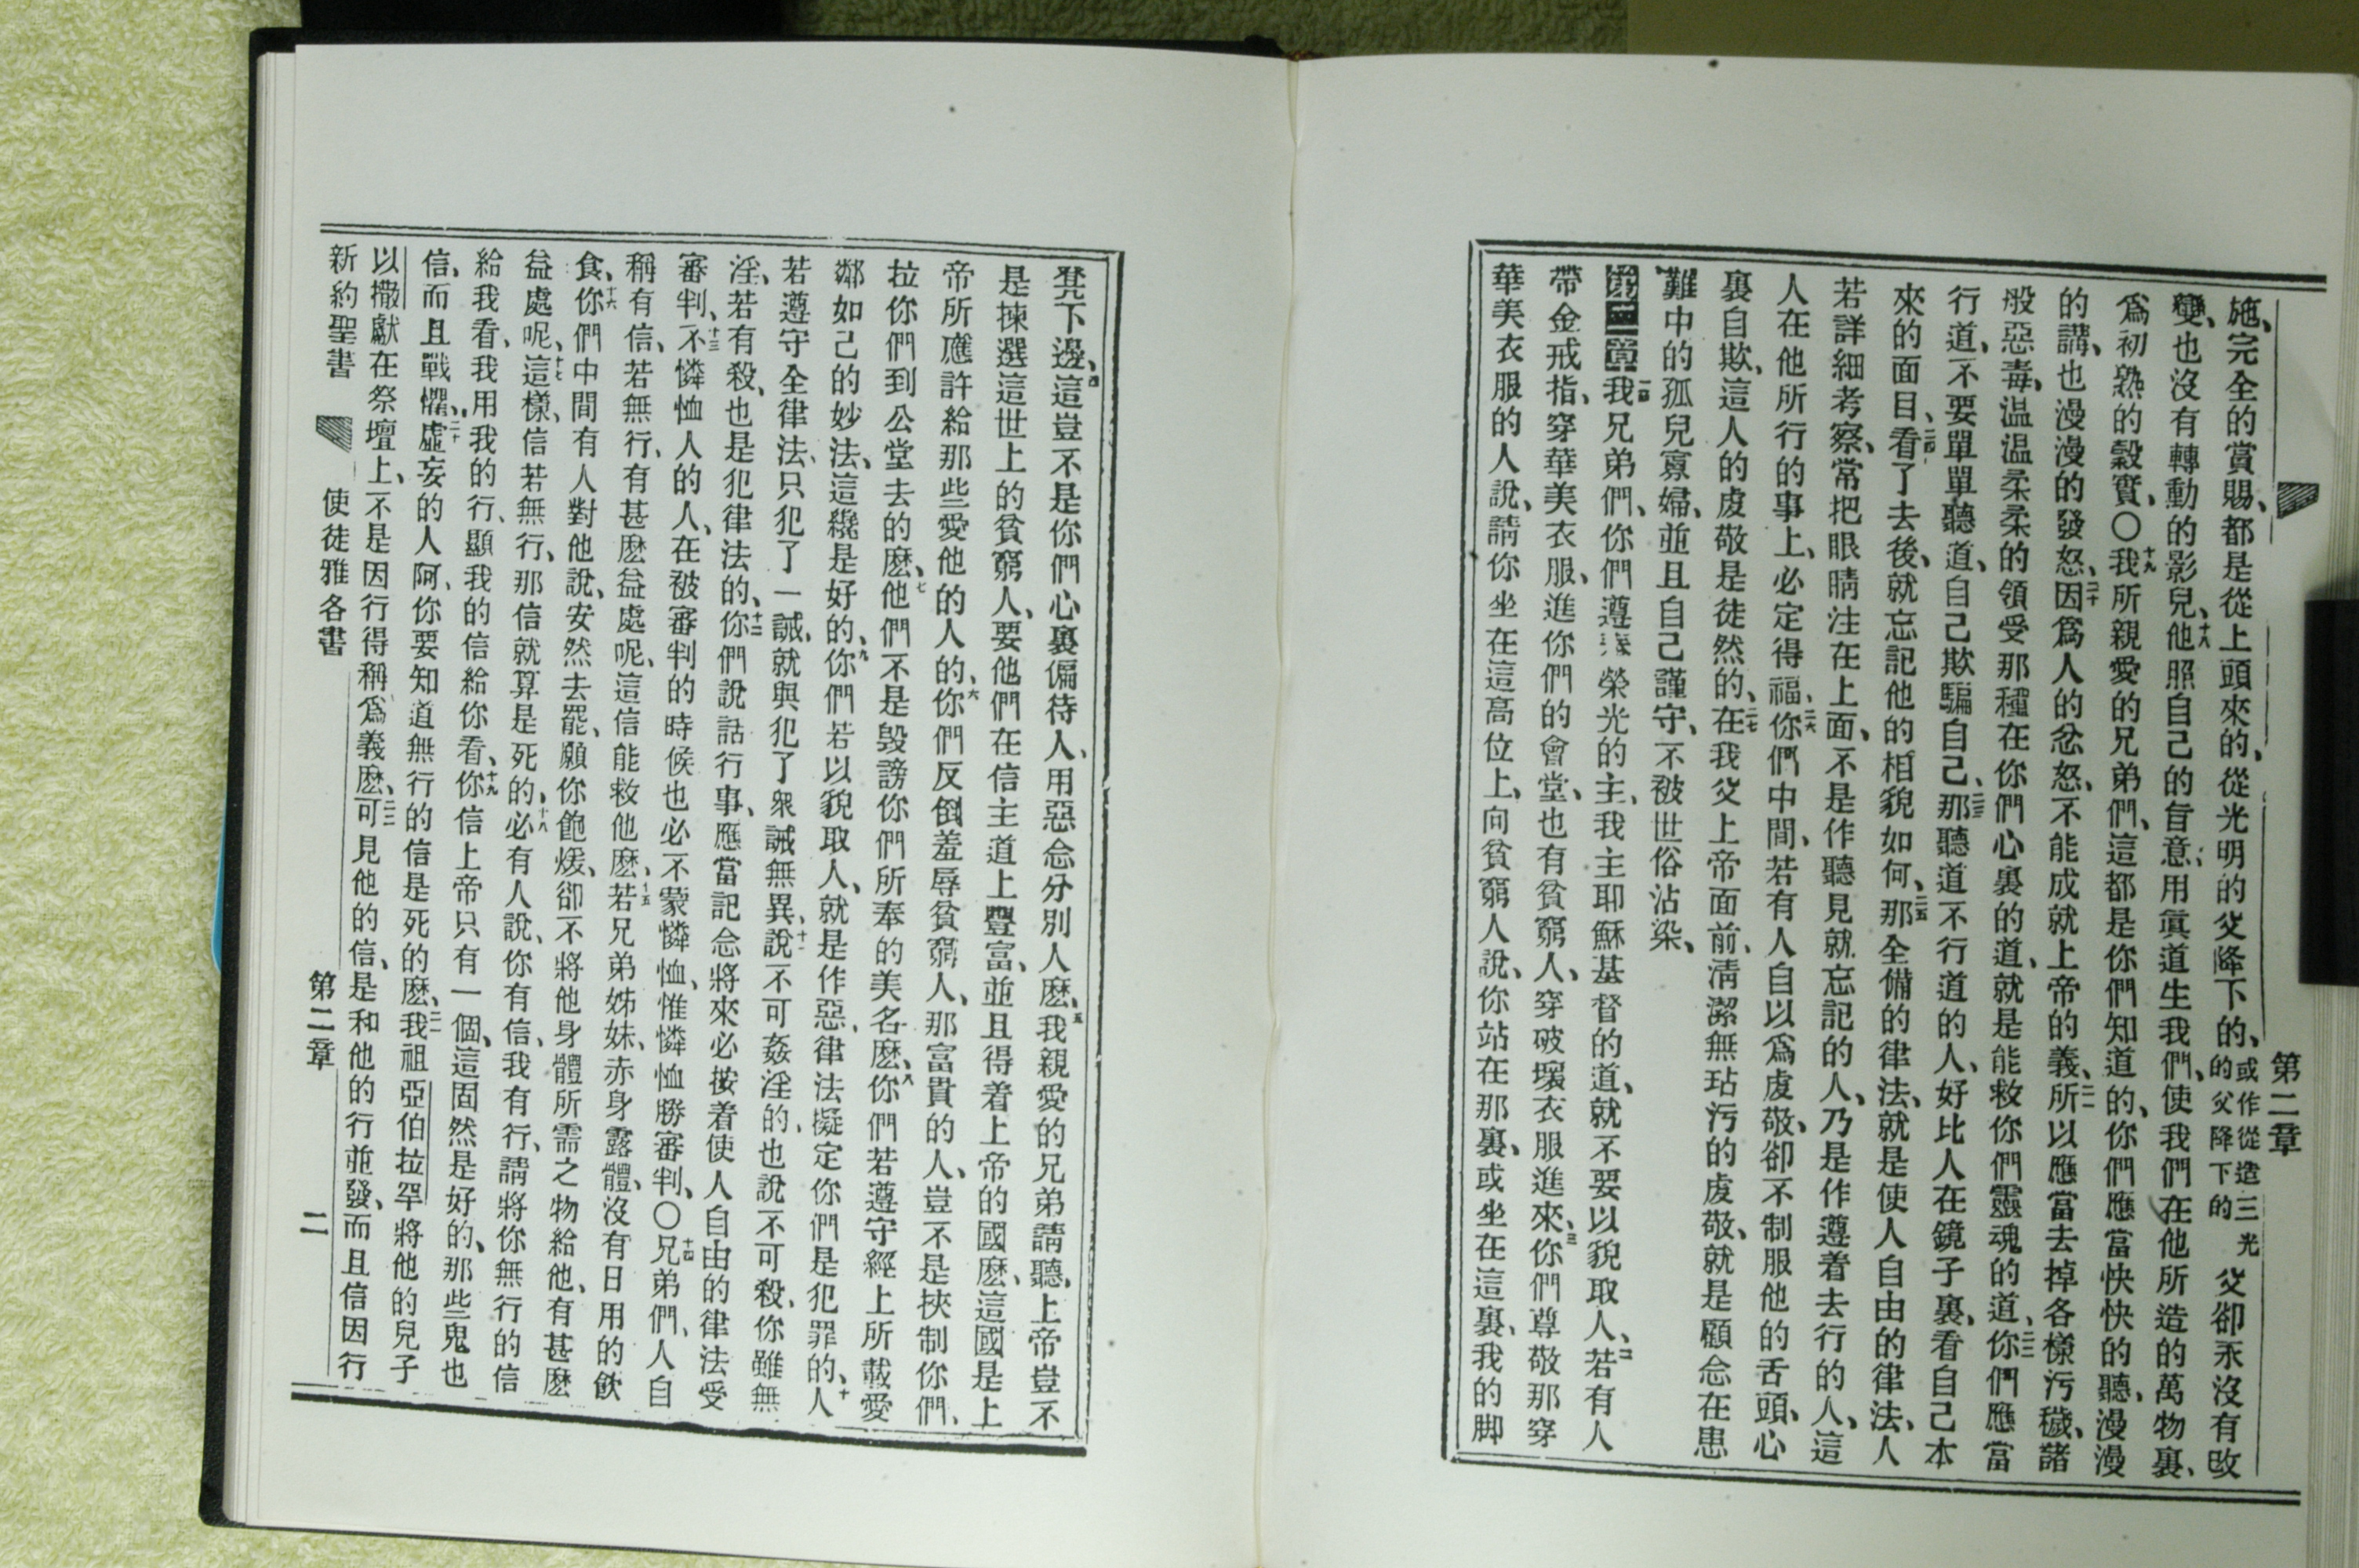 第二章
施、完全的賞賜、都是從上頭來的、從光明的父降下的、或作從造三光的父降下的父卻永沒有改
變、也沒有轉動的影兒、十八他照自己的旨意、用眞道生我們、使我們在他所造的萬物裏、
爲初熟的穀實、〇十九我所親愛的兄弟們、這都是你們知道的、你們應當快快的聽、漫漫
的講、也漫漫的發怒、二十因爲人的忿怒、不能成就上帝的義、二一所以應當去掉各樣污穢、諸
般惡毒、温温柔柔的領受那種在你們心裏的道、就是能救你們靈魂的道、二二你們應當
行道、不要單單聽道、自己欺騙自己、二三那聽道不行道的人、好比人在鏡子裏、看自己本
來的面目、二四看了去後、就忘記他的相貌如何、二五那全備的律法、就是使人自由的律法、人
若詳細考察、常把眼睛注在上面、不是作聽見就忘記的人、乃是作遵着去行的人、這
人在他所行的事上、必定得福、二六你們中間、若有人自以爲虔敬、卻不制服他的舌頭、心
裏自欺、這人的虔敬是徒然的、二七在我父上帝面前、淸潔無玷污的虔敬、就是顧念在患
難中的孤兒寡婦、並且自己謹守、不被世俗沾染、
第二章一我兄弟們、你們遵奉榮光的主、我主耶穌基督的道、就不要以貌取人、二若有人
帶金戒指、穿華美衣服、進你們的會堂、也有貧窮人、穿破壞衣服進來、三你們尊敬那穿
華美衣服的人、說、請你坐在這高位上、向貧窮人說、你站在那裏、或坐在這裏、我的脚
凳下邊、四這豈不是你們心裏偏待人、用惡念分別人麼、五我親愛的兄弟請聽、上帝豈不
是揀選這世上的貧窮人、要他們在信主道上豐富、並且得着上帝的國麼、這國是上
帝所應許給那些愛他的人的、六你們反倒羞辱貧窮人、那富貴的人、豈不是挾制你們、
拉你們到公堂去的麼、七他們不是毀謗你們所奉的美名麼、八你們若遵守經上所載愛
鄰如己的妙法、這纔是好的、九你們若以貌取人、就是作惡、律法擬定你們是犯罪的、十人
若遵守全律法、只犯了一誡、就與犯了衆誡無異、十一說不可姦淫的、也說不可殺、你雖無
淫、若有殺、也是犯律法的、十二你們說話行事、應當記念將來必按着使人自由的律法受
審判、十三不憐恤人的人、在被審判的時候也必不蒙憐恤、惟憐恤勝審判、〇十四兄弟們、人自
稱有信、若無行、有甚麼益處呢、這信能救他麼、十五若兄弟姊妹、赤身露體、沒有日用的飮
食、十六你們中間有人對他說、安然去罷、願你飽煖、卻不將他身體所需之物給他、有甚麼
益處呢、十七這樣、信若無行、那信就算是死的、十八必有人說、你有信、我有行、請將你無行的信
給我看、我用我的行、顯我的信給你看、十九你信上帝只有一個、這固然是好的、那些鬼也
信、而且戰懼、二十虛妄的人阿、你要知道無行的信是死的麼、二一我祖亞伯拉罕將他的兒子
以撒獻在祭壇上、不是因行得稱爲義麼、二二可見他的信、是和他的行並發、而且信因行
新約聖書 使徒雅各書 第二章 二